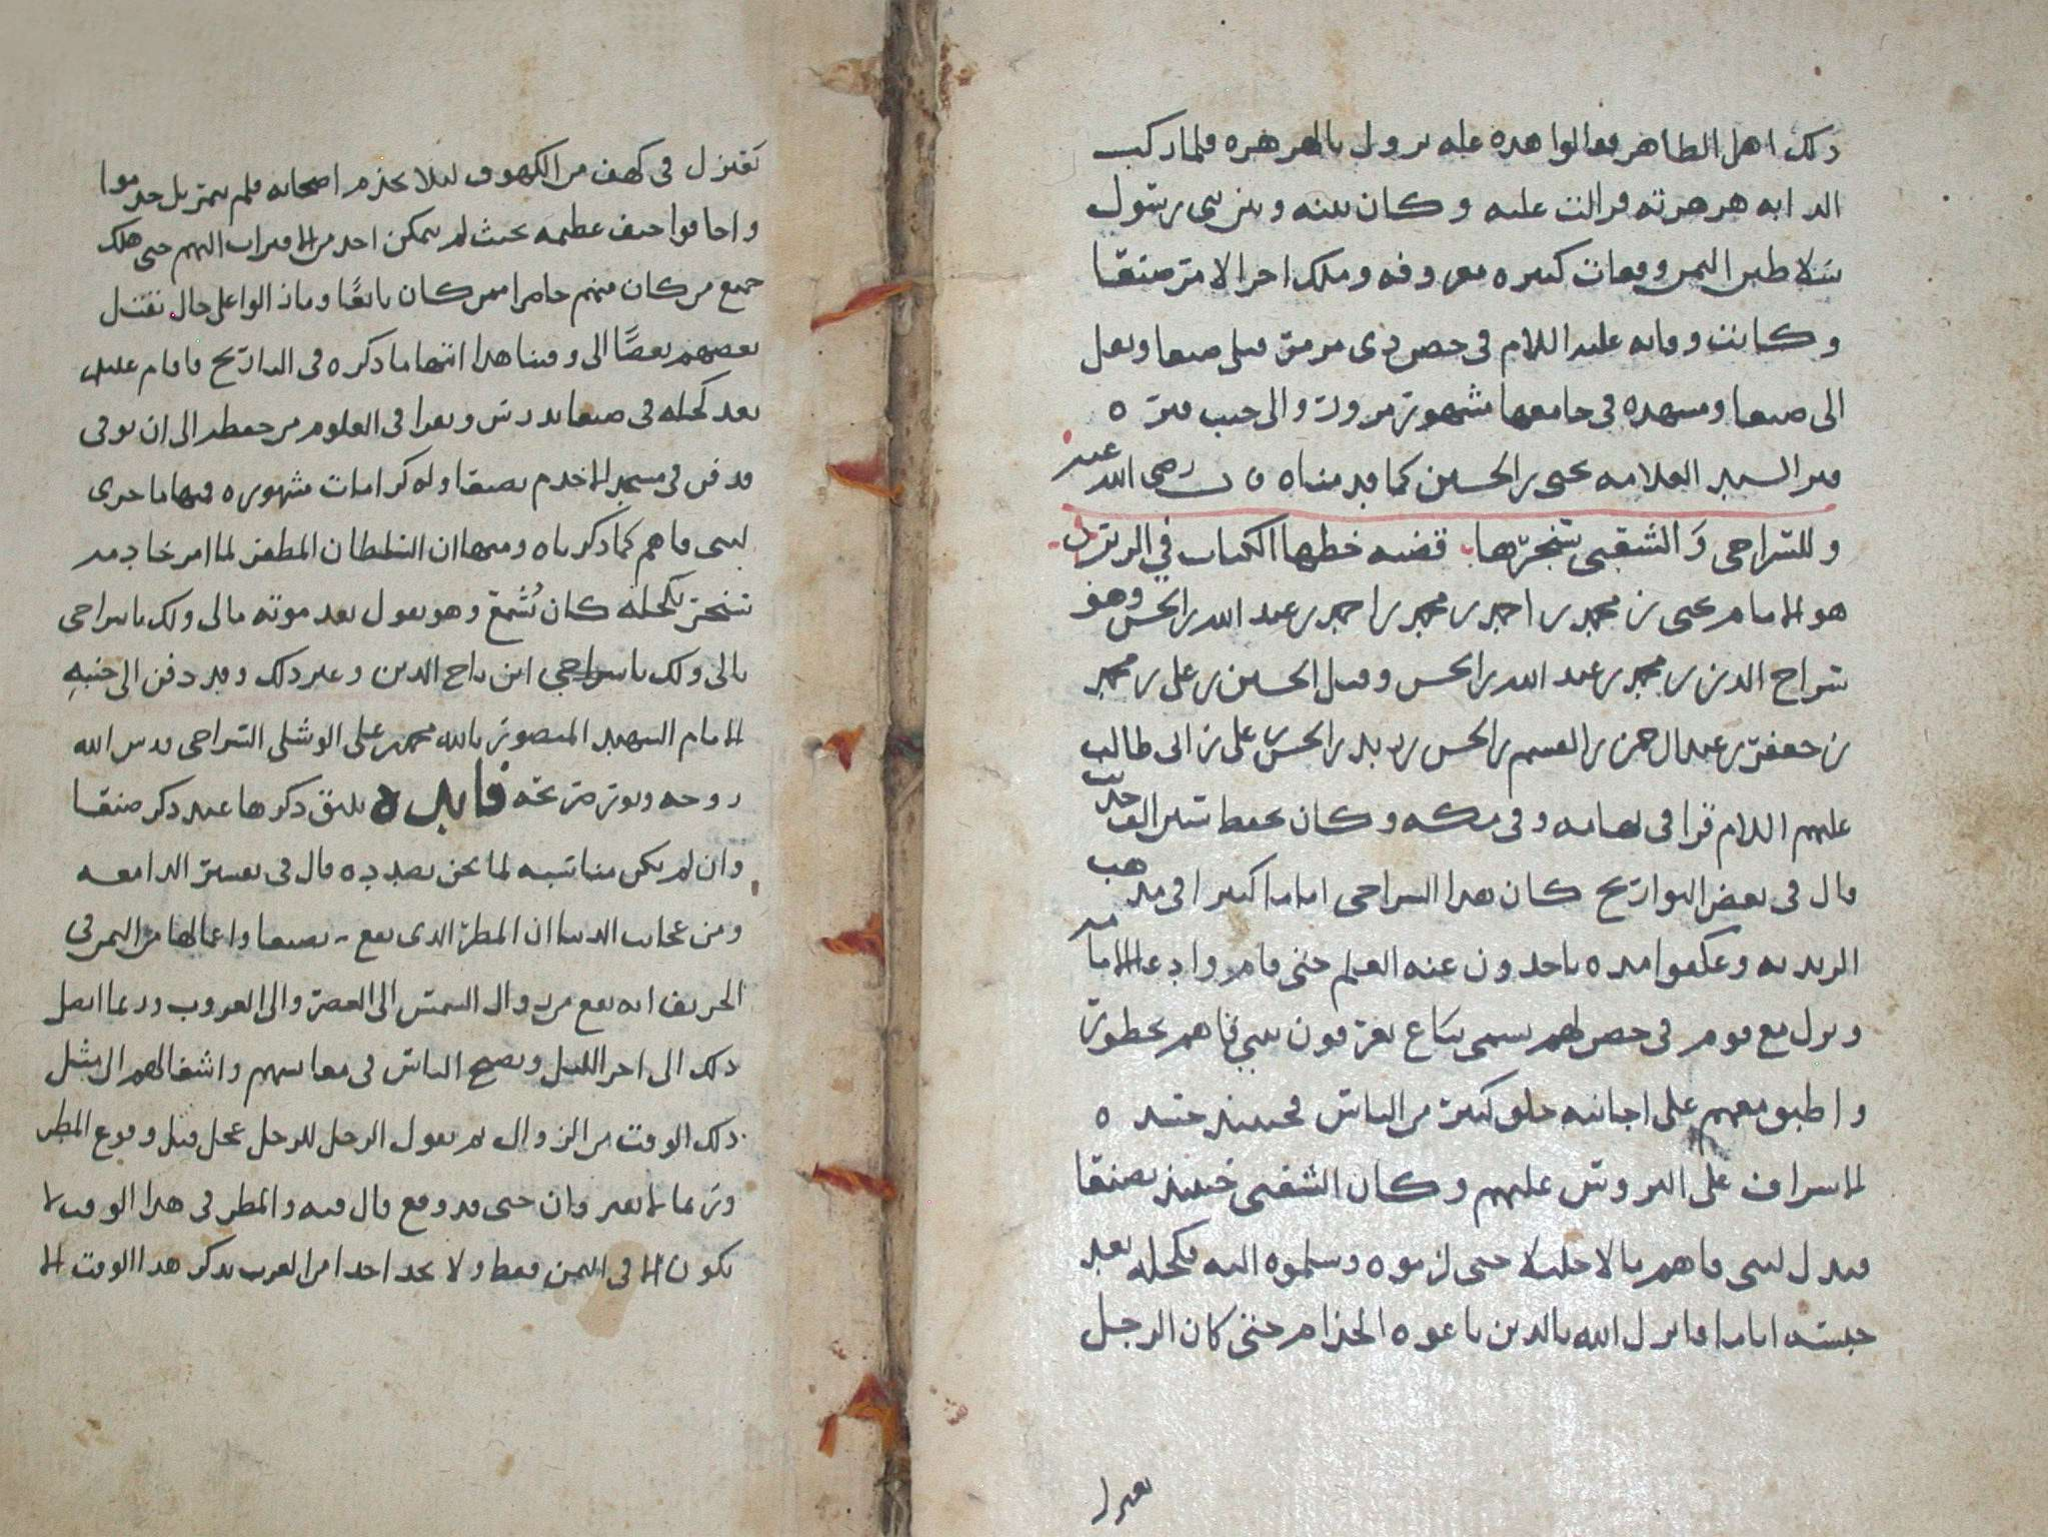 ذلك اهل الطاهر فقالوا هذه عله تزول بالهرهره فلما ركب
الدابه هرهرته فزالت عليه وكان بينه وبين بني رسول
سلاطين اليمن وقعات كثيره معروفه وملك اخر الامر صنعا
وكانت وفاته عليه السلام في حصن ذي مرمر قبلي صنعا ونقل
الى صنعا ومشهده في جامعها مشهور مزور والى جنب قبره ه
قبر السيد العلامه يحيى بن الحسين كما قدمناه رضي الله عنه
وللسراجي والشقبي سنجرها قضيه خطها الكتاب في الزبر
هو الامام يحيى بن محمد بن احمد بن محمد بن احمد بن عبد الله بن الحسن وهو
سراج الدين بن محمد بن عبد الله بن الحسن وقيل الحسين بن علي بن محمد
بن جعفر بن عبد الرحمن بن القسم بن الحسن بن زيد بن الحسن بن علي بن ابي طالب
عليهم السلام قرا في تهامه وفي مكه وكان يحفظ سير الف حديث
قال في بعض التواريخ كان هذا السراجي اماما كبيرا في مذهب
الزيديه وعكفوا مده ياخذون عنه العلم حتى قام وادعا الامامه
ونزل مع قوم في حصن لهم يسمى بناع يعرفون ببني فاهم بحضور
واطبق معهم على اجابته خلق كثير من الناس فحينئذ حسده
الاسراف على البروس عليهم وكان الشقبي حينئذ بصنعا
فبذل لبني فاهم مالا جليلا حتى لزموه وسلموه اليه فكحله بعد
حبسه اياما فانزل الله بالذين باعوه الجذام حتى كان الرجل
يعتزل
يعتزل في كهف من الكهوف ليلا يجذم اصحابه فلم يتم بل جذموا
واجافوا جيف عظيمه بحيث لم يتمكن احد من الاقتراب اليهم حتى هلك
جميع من كان منهم حاضرا ممن كان بايعا وما زالوا على حال يقتل
بعضهم بعضا الى وقتنا هذا انتها ما ذكره في التاريخ واقام عليلم
بعد كحله في صنعا يدرس ويقرا في العلوم من حفظه الى ان توفي
ودفن في مسجد الاخدم بصنعا وله كرامات مشهوره منها ما جرى
لبني فاهم كما ذكرناه ومنها ان السلطان المظفر لما امر خادمه
سنجر بكحله كان يسمع وهو يقول بعد موته مالي ولك يا سراجي
مالي ولك يا سراجي ابن تاج الدين وغير ذلك وقد دفن الى جنبه
الامام الشهيد المنصور بالله محمد بن علي الوشلي السراجي قدس الله
روحه ونور ضريحه فايده يليق ذكرها عند ذكر صنعا
وان لم يكن مناسبه لما نحن بصدده قال في تفسير الدامعه
ومن عجائب الدنيا ان المطر الذي يقع بصنعا واعمالها من اليمن في
الخريف انه يقع من زوال الشمس الى العصر والى الغروب وربما اتصل
ذلك الى اخر الليل ويصبح الناس في معايشهم واشغالهم الى مثل
ذلك الوقت من الزوال ثم يقول الرجل للرجل عجل قبل وقوع المطر
وربما لا يفترقان حتى قد وقع قال فيه والمطر في هذا الوقت لا
يكون الا في اليمن فقط ولا نجد احدا من العرب يذكر هذا الوقت الا